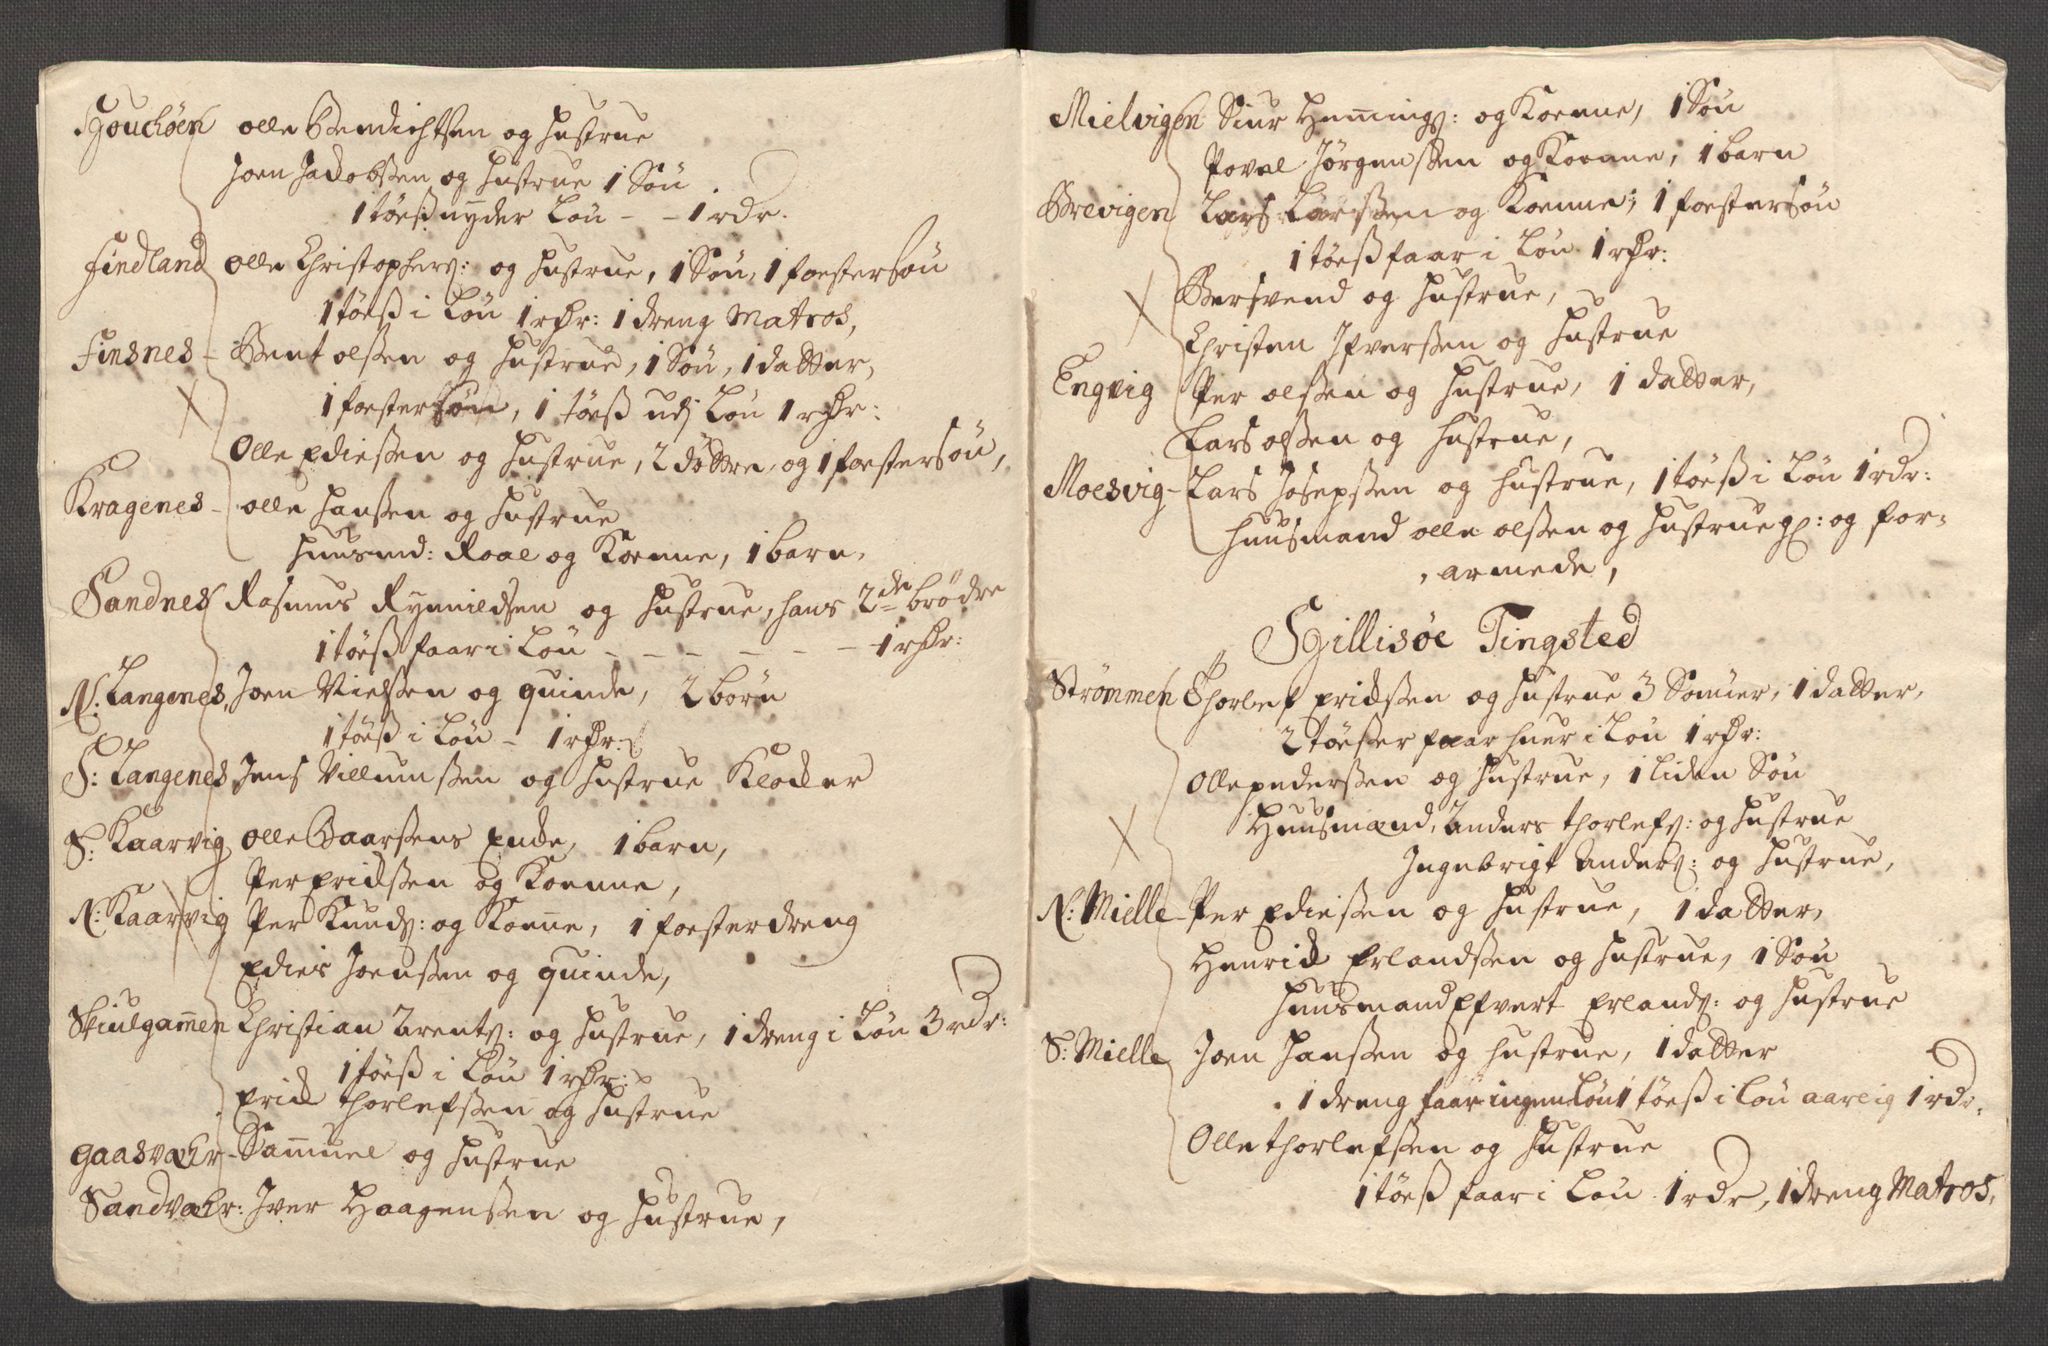 olle Bendichtsen og Hustrue
Joen Jacobsen og Hustrue 1 Søn
1 töeß nyder Løn - - 1 rdr.
Findland olle Christophers: og Hustrue, 1 Søn, 1 foestersøn
1 töeß i Løn 1 rdr: 1 dreng Matros,
Finsnes - Bent olsen og Hustrue, 1 Søn, 1 datter,
1 foestersøn, 1 töeß udj Løn 1 rdr:
Olle Ediesen og Hustrue, 2 döttre, og 1 foestersøn,
Kragenes - olle Hansen og Hustrue
Huusmd: Roal og Koenne, 1 barn,
Sandnes Rasmus og Hustrue, hans 2de brödre
1 töeß faar i Løn - - - - - - 1 rdr:
N: Langenes, Joen Nielsen og quinde, 2 börn
1 töeß i Løn - 1 rdr:
S: Langenes Jens Villumsen og Hustrue Klocker
S: Kaarvig olle Baarsens Encke, 1 barn,
Per Ericksen og Koenne,
N: Kaarvig Per Knuds: og Koene, 1 foesterdreng
Edies Joensen og quinde,
Skiulgamen Christian Arents: og Hustrue, 1 dreng i Løn 3 rdr:
1 töeß i Løn 1 rdr:
Erick thorlefsen og Hustrue
Gaasvær - Samuel og Hustrue
Sandvær: Iver Haagensen og Hustrue,
Mielvigen Siur Hemings: og Koenne, 1 Søn
Povel Jörgensen og Koenne, 1 barn
Brevigen Lars Larsen og Koenne, 1 foestersøn
1 töeß faar i Løn 1 rdr:
Bersvend og Hustrue,
Christen Ifversen og Hustrue
Engvig Per olsen og Hustrue, 1 datter,
Lars olsen og Hustrue,
Moesvig - Lars Josepsen og Hustrue, 1 töeß i Løn 1 rdr:
Huusmand olle olsen og Hustrue og for-
armede,
Gillisøe Tingsted
Strømmen Thorlef Ericksen og Hustrue 3 Sønner, 1 datter,
2 töeser faar huer i Løn 1 rdr:
Olle pedersen og Hustrue, 1 liden Søn
Huusmænd, Anders thorlefs: og Hustrue
Ingebrigt Anders: og Hustrue,
N: Mielle - Per Ediesen og Hustrue, 1 datter,
Henrick Erlandsen og Hustrue, 1 Søn
Huusmand Efvert Erlands: og Hustrue
S: Mielle Joen Hansen og Hustrue, 1 datter
1 dreng faar ingen Løn 1 töeß i Løn aarlig 1 rdr,
Olle thorlefsen og Hustrue
1 töeß faar i Løn 1 rdr, 1 dreng Matros,